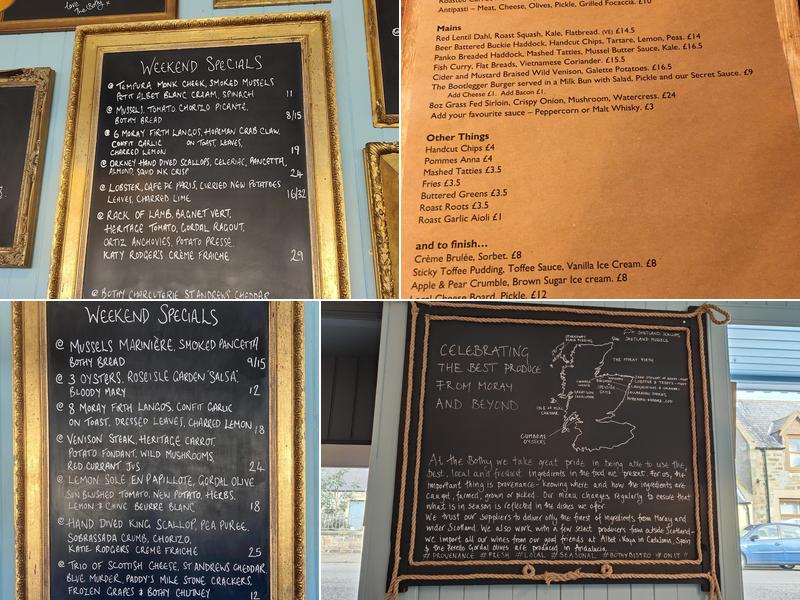 love The Bothy x
WEEKEND SPECIALS
@ TEMPURA MONK CHEEK, SMOKED MUSSELS
PETIT ALBET BLANC CREAM, SPINACH 11
@ MUSSELS, TOMATO CHORIZO PICANTE,
BOTHY BREAD 8/15
@ 6 MORAY FIRTH LANGOS, HOPEMAN CRAB CLAW,
CONFIT GARLIC ON TOAST, LEAVES,
CHARRED LEMON 19
@ ORKNEY HAND DIVED SCALLOPS, CELERIAC, PANCETTA,
ALMOND, SQUID INK CRISP 24
@ LOBSTER, CAFE DE PARIS, CURRIED NEW POTATOES
LEAVES, CHARRED LIME 16/32
@ RACK OF LAMB, BAGNET VERT,
HERITAGE TOMATO, GORDAL RAGOUT,
ORTIZ ANCHOVIES, POTATO PRESSE,
KATY RODGER'S CRÈME FRAICHE 29
@ BOTHY CHARCUTERIE ST ANDREWS CHEDDAR
Antipasti – Meat, Cheese, Olives, Pickle, Grilled Focaccia. £10
Mains
Red Lentil Dahl, Roast Squash, Kale, Flatbread. (VE) £14.5
Beer Battered Buckie Haddock, Handcut Chips, Tartare, Lemon, Peas. £14
Panko Breaded Haddock, Mashed Tatties, Mussel Butter Sauce, Kale. £16.5
Fish Curry, Flat Breads, Vietnamese Coriander. £15.5
Cider and Mustard Braised Wild Venison, Galette Potatoes. £16.5
The Bootlegger Burger served in a Milk Bun with Salad, Pickle and our Secret Sauce. £9
Add Cheese £1. Add Bacon £1.
8oz Grass Fed Sirloin, Crispy Onion, Mushroom, Watercress. £24
Add your favourite sauce – Peppercorn or Malt Whisky. £3
Other Things
Handcut Chips £4
Pommes Anna £4
Mashed Tatties £3.5
Fries £3.5
Buttered Greens £3.5
Roast Roots £3.5
Roast Garlic Aioli £1
and to finish...
Crème Brulée, Sorbet. £8
Sticky Toffee Pudding, Toffee Sauce, Vanilla Ice Cream. £8
Apple & Pear Crumble, Brown Sugar Ice cream. £8
Local Cheese Board, Pickle. £12
WEEKEND SPECIALS
@ MUSSELS MARINIÈRE, SMOKED PANCETTA
BOTHY BREAD 9/15
@ 3 OYSTERS, ROSEISLE GARDEN 'SALSA',
BLOODY MARY 12
@ 8 MORAY FIRTH LANGOS, CONFIT GARLIC
ON TOAST, DRESSED LEAVES, CHARRED LEMON 18
@ VENISON STEAK, HERITAGE CARROT,
POTATO FONDANT, WILD MUSHROOMS,
RED CURRANT JUS 24
@ LEMON SOLE EN PAPILLOTE, GORDAL OLIVE
SUN BLUSHED TOMATO, NEW POTATO, HERBS,
LEMON & CHIVE BEURRE BLANC 18
@ HAND DIVED KING SCALLOP, PEA PUREE,
SOBRASSADA CRUMB, CHORIZO,
KATIE RODGERS CREME FRAICHE 25
@ TRIO OF SCOTTISH CHEESE, ST ANDREWS CHEDDAR
BLUE MURDER, PADDY'S MILE STONE CRACKERS,
FROZEN GRAPES & BOTHY CHUTNEY 12
CELEBRATING
THE BEST PRODUCE
FROM MORAY
AND BEYOND
STORNOWAY
BLACK PUDDING
SHETLAND SCALLOPS
SHETLAND MUSSELS
THE MORAY FIRTH
ISLE OF MULL
CHEDDAR
CUMBRAE
OYSTERS
At the Bothy we take great pride in being able to use the
best, local and freshest ingredients in the food we present. For us, the
important thing is provenance - knowing where and how the ingredients are
caught, farmed, grown or picked. Our menu changes regularly to ensure that
what is in season is reflected in the dishes we offer.
We trust our suppliers to deliver only the finest of ingredients from Moray and
wider Scotland. We also work with a few select producers from outside Scotland -
we import all our wines from our good friends at Albet i Noya in Catalonia, Spain
& the Perello Gordal olives are produced in Andalucia.
#PROVENANCE #FRESH #LOCAL #SEASONAL #BOTHYBISTRO #ONIT!!